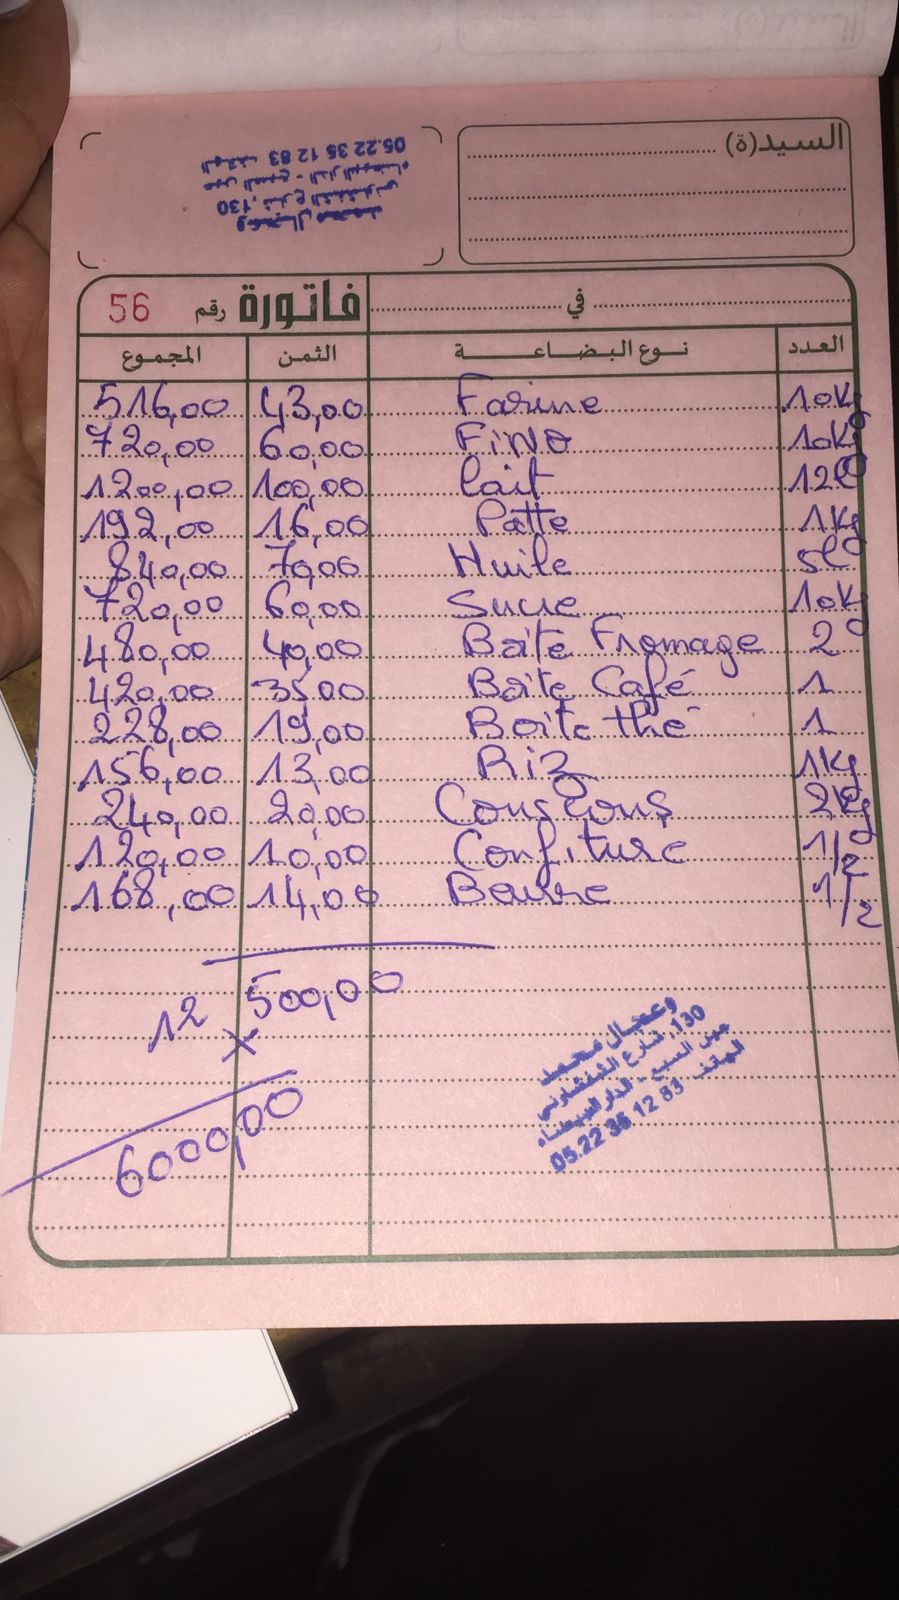 السيد(ة)
وعجال محمد
130, شارع الشفشاوني
عين السبع - الدار البيضاء
الهاتف 05.22 35 12 83
فاتورة رقم 56
في
العدد نوع البضاعة الثمن المجموع
10Kg Farine 43,00 516,00
10Kg FiNO 60,00 720,00
12l lait 100,00 1200,00
1Kg Patte 16,00 192,00
5l Huile 70,00 840,00
10Kg Sucre 60,00 720,00
2 Boite Fromage 40,00 480,00
1 Boite Café 35,00 420,00
1 Boite thé 19,00 228,00
1Kg Riz 13,00 156,00
2Kg Couscous 20,00 240,00
1/2 Confiture 10,00 120,00
1/2 Beurre 14,00 168,00
500,00
12 ×
6000,00
وعجال محمد
130, شارع الشفشاوني
عين السبع - الدار البيضاء
الهاتف 05.22 35 12 83